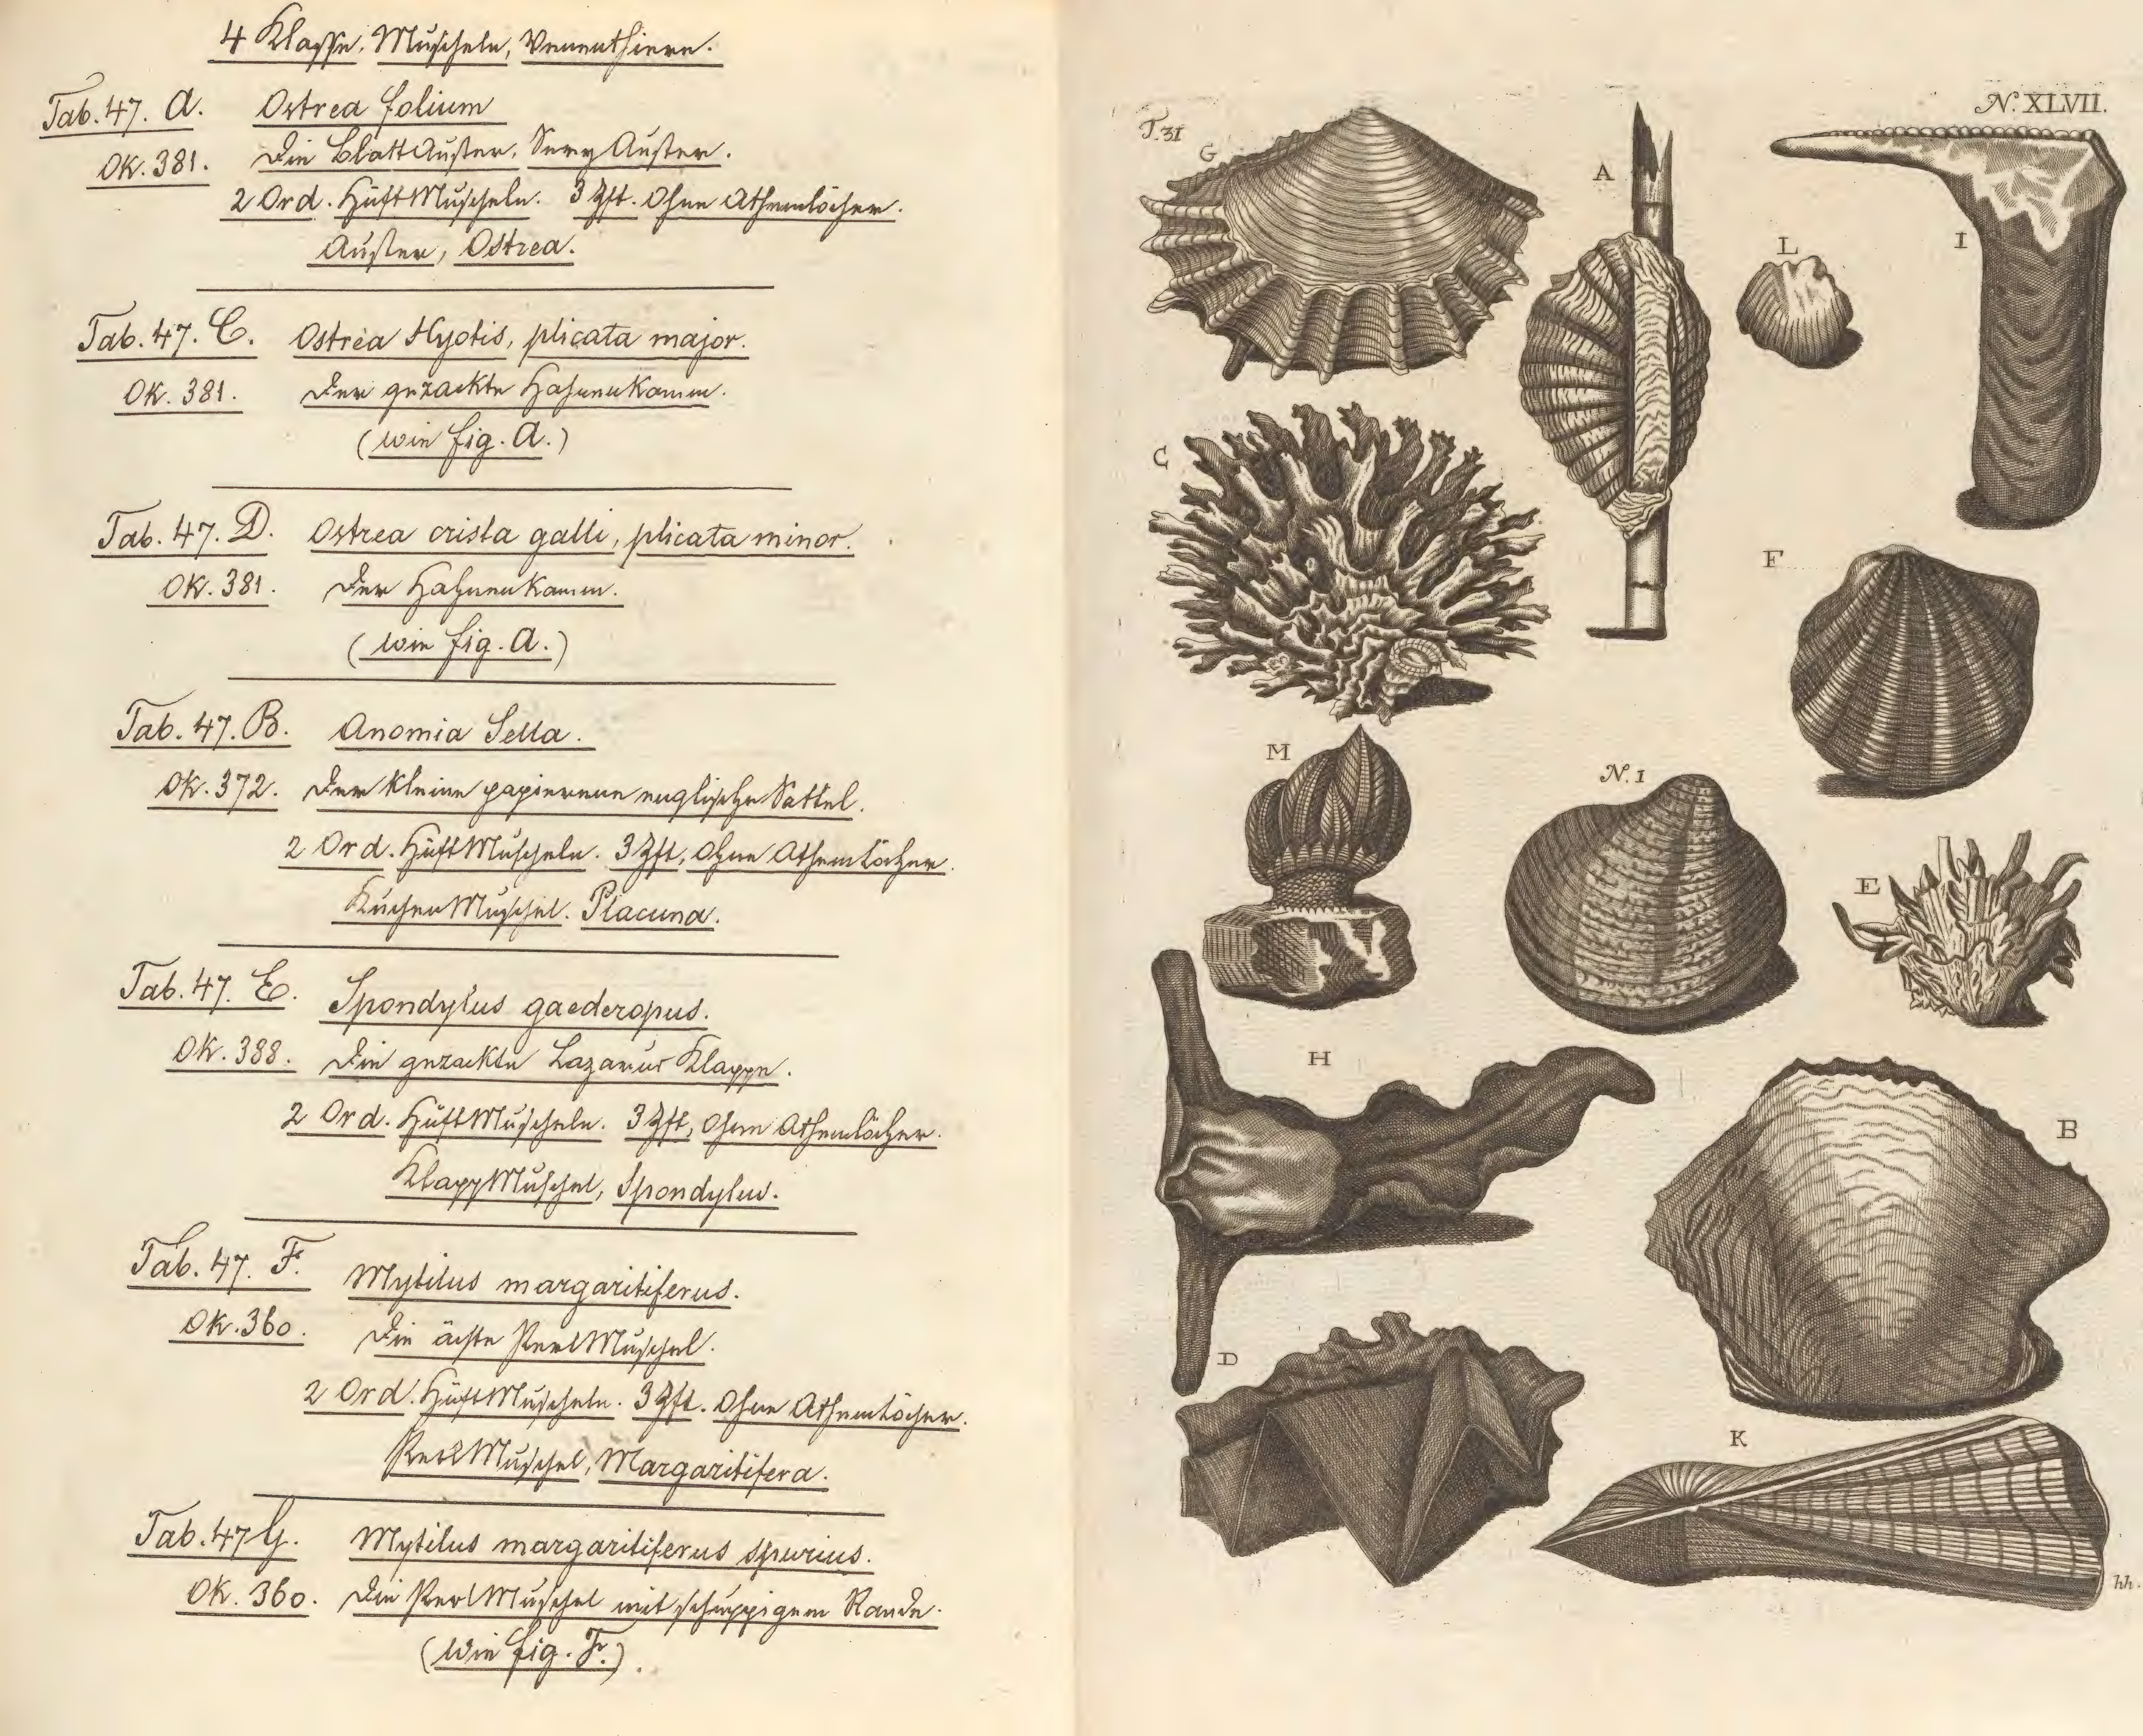 4 Klasse. Muscheln, Venenthiere.
Tab. 47. A. Ostrea folium
Ok. 381. Die BlattAuster, Auster.
2 Ord. HüftMuscheln. 3 Zft. Ohne Athemlöcher.
Auster, Ostrea.
Tab. 47. C. Ostrea Hyotis, plicata major.
Ok. 381. Der gezackte Hahnenkamm.
(wie fig. A.)
Tab. 47. D. Ostrea crista galli, plicata minor.
Ok. 381. Der Hahnenkamm.
(wie fig. A.)
Tab. 47. B. Anomia Sella.
Ok. 372. Der kleine papierene englische Sattel.
2 Ord. HüftMuscheln. 3 Zft, Ohne Athemlöcher.
KuchenMuschel. Placuna.
Tab. 47. E. Spondylus gaederopus.
Ok. 388. Die gezackte Lazarus Klappe.
2 Ord. HüftMuscheln. 3 Zft, Ohne Athemlöcher.
KlappMuschel, Spondylus.
Tab. 47. F. Mytilus margaritiferus.
Ok. 360. Die ächte PerlMuschel.
2 Ord. HüftMuscheln. 3 Zft. Ohne Athemlöcher.
PerlMuschel, Margaritifera.
Tab. 47 G. Mytilus margaritiferus spurius.
Ok. 360. Die PerlMuschel mit schuppigem Rande.
(wie fig. F.).
N. XLVII.
T. 31
G
A
I
L
C
F
M
N. 1
E
H
B
D
K
hh.